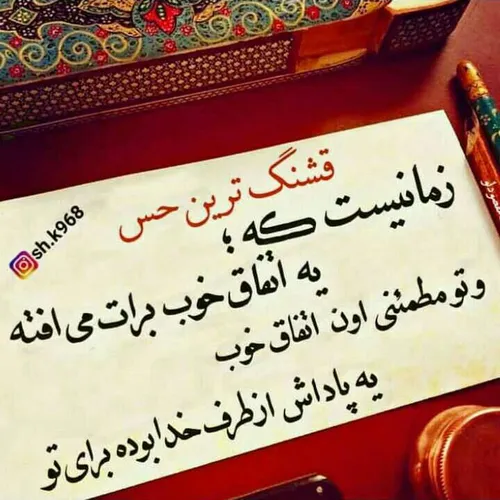 قشنگ ترین حس
زمانیست که ؛
یه اتفاق خوب برات می افته
و تو مطمئنی اون اتفاق خوب
یه پاداش از طرف خدا بوده برای تو
sh.k968